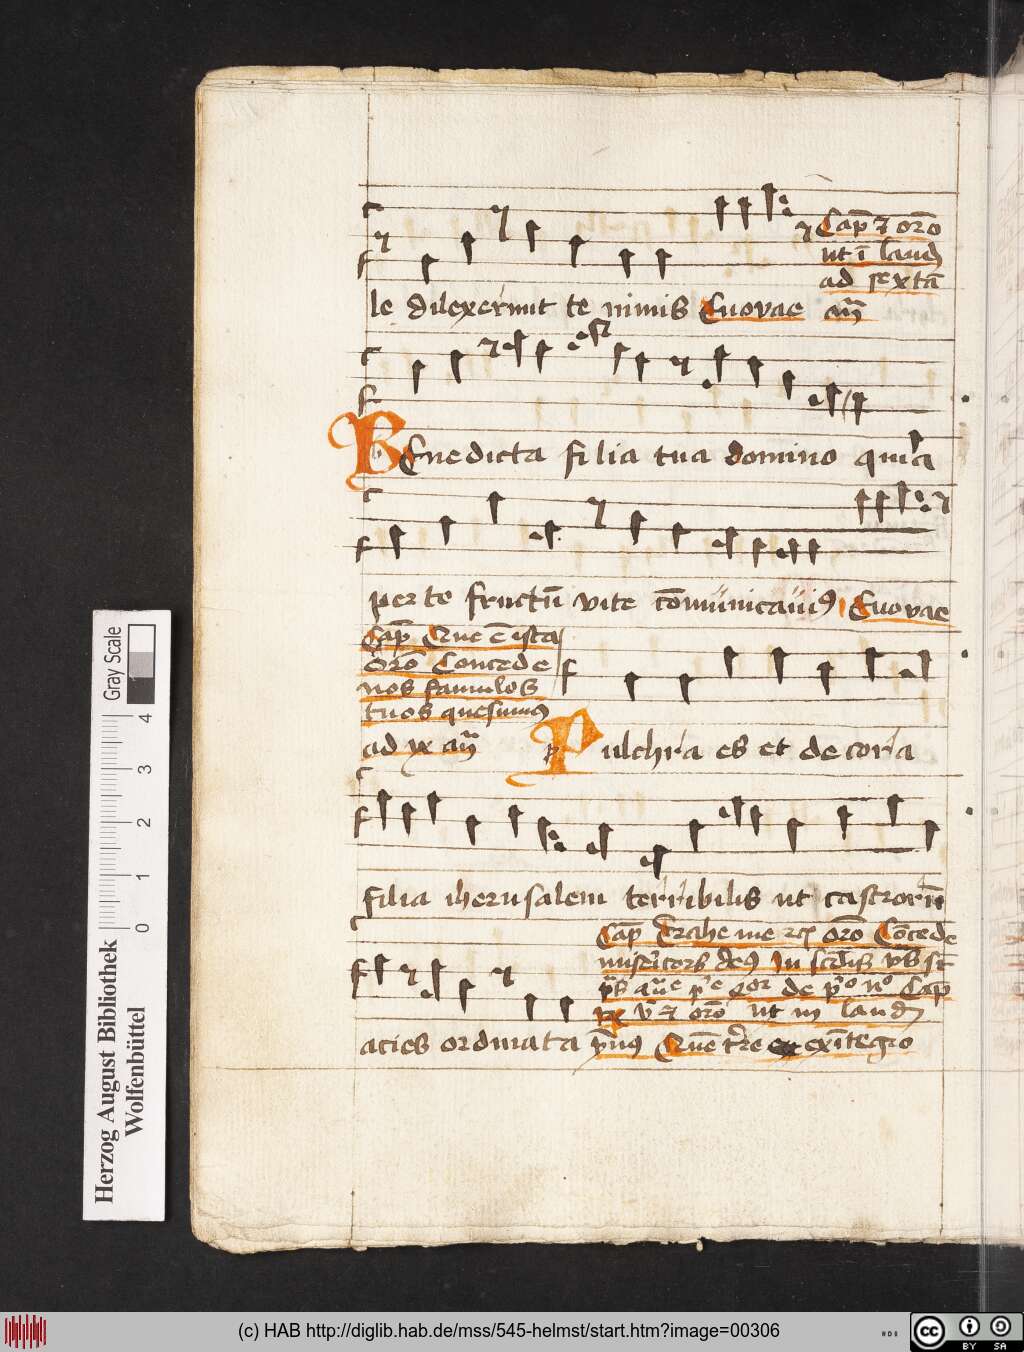 Cap̄ ⁊ oro͞
ut ī laud
ad sextā
le dilexerunt te nimis Euovae an̄
Benedicta filia tua domino quia
per te fructū vite cōmunicauiꝰ Euovae
Cap̄ Que ē ista
Oro͞ Concede
nos famulos
tuos quesumus
ad ix an̄
Pulchra es et decora
filia iherusalem terribilis ut castrorū
Cap̄ Trahe me oro͞ Cōcede
misericors deꝰ In
de Cap̄
oro͞ ut in laud
acies ordinata
Gray Scale
4
3
2
1
0
Herzog August Bibliothek
Wolfenbüttel
(c) HAB http://diglib.hab.de/mss/545-helmst/start.htm?image=00306
cc BY SA